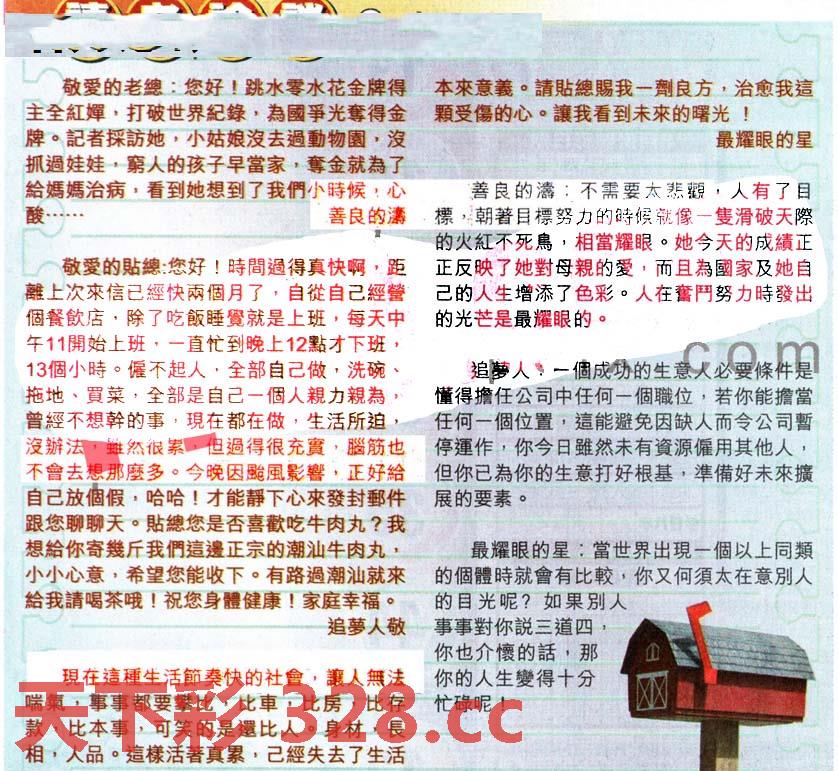 敬愛的老總：您好！跳水零水花金牌得
主全紅嬋，打破世界紀錄，為國爭光奪得金
牌。記者採訪她，小姑娘沒去過動物園，沒
抓過娃娃，窮人的孩子早當家，奪金就為了
給媽媽治病，看到她想到了我們小時候，心
酸……
善良的濤
敬愛的貼總:您好！時間過得真快啊，距
離上次來信已經快兩個月了，自從自己經營
個餐飲店，除了吃飯睡覺就是上班，每天中
午11開始上班，一直忙到晚上12點才下班，
13個小時。僱不起人，全部自己做，洗碗、
拖地、買菜，全部是自己一個人親力親為，
曾經不想幹的事，現在都在做，生活所迫，
沒辦法，雖然很累，但過得很充實，腦筋也
不會去想那麼多。今晚因颱風影響，正好給
自己放個假，哈哈！才能靜下心來發封郵件
跟您聊聊天。貼總您是否喜歡吃牛肉丸？我
想給你寄幾斤我們這邊正宗的潮汕牛肉丸，
小小心意，希望您能收下。有路過潮汕就來
給我請喝茶哦！祝您身體健康！家庭幸福。
追夢人敬
現在這種生活節奏快的社會，讓人無法
喘氣，事事都要攀比，比車，比房，比存
款，比本事，可笑的是還比人。身材，長
相，人品。這樣活著真累，己經失去了生活
本來意義。請貼總賜我一劑良方，治愈我這
顆受傷的心。讓我看到未來的曙光！
最耀眼的星
善良的濤：不需要太悲觀，人有了目
標，朝著目標努力的時候就像一隻滑破天際
的火紅不死鳥，相當耀眼。她今天的成績正
正反映了她對母親的愛，而且為國家及她自
己的人生增添了色彩。人在奮鬥努力時發出
的光芒是最耀眼的。
追夢人：一個成功的生意人必要條件是
懂得擔任公司中任何一個職位，若你能擔當
任何一個位置，這能避免因缺人而令公司暫
停運作，你今日雖然未有資源僱用其他人，
但你已為你的生意打好根基，準備好未來擴
展的要素。
最耀眼的星：當世界出現一個以上同類
的個體時就會有比較，你又何須太在意別人
的目光呢？如果別人
事事對你說三道四，
你也介懷的話，那
你的人生變得十分
忙碌呢！
com
天下彩 328.cc